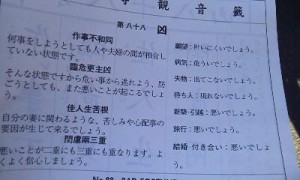 観音籤
第八十八 凶
作事不和同
何事をしようとしても人や夫婦の間が相合し
ていない状態です。
臨危更主凶
そんな状態ですから危い事から逃れよう、防
ごうとしても、また悪いことが起こるでしょ
う。
佳人生苦根
自分の妻に関するような、苦しみや心配事の
要因が生じて来るでしょう。
閉慮兩三重
悪いことが二重にも三重にも重なります。よ
くよく信心しましょう。
願望：叶いにくいでしょう。
病気：危いでしょう。
失物：出てこないでしょう。
待ち人：現れないでしょう。
新築・引越：悪いでしょう。
旅行：悪いでしょう。
結婚・付き合い：悪いでしょう。
No.88 BAD FORTUNE